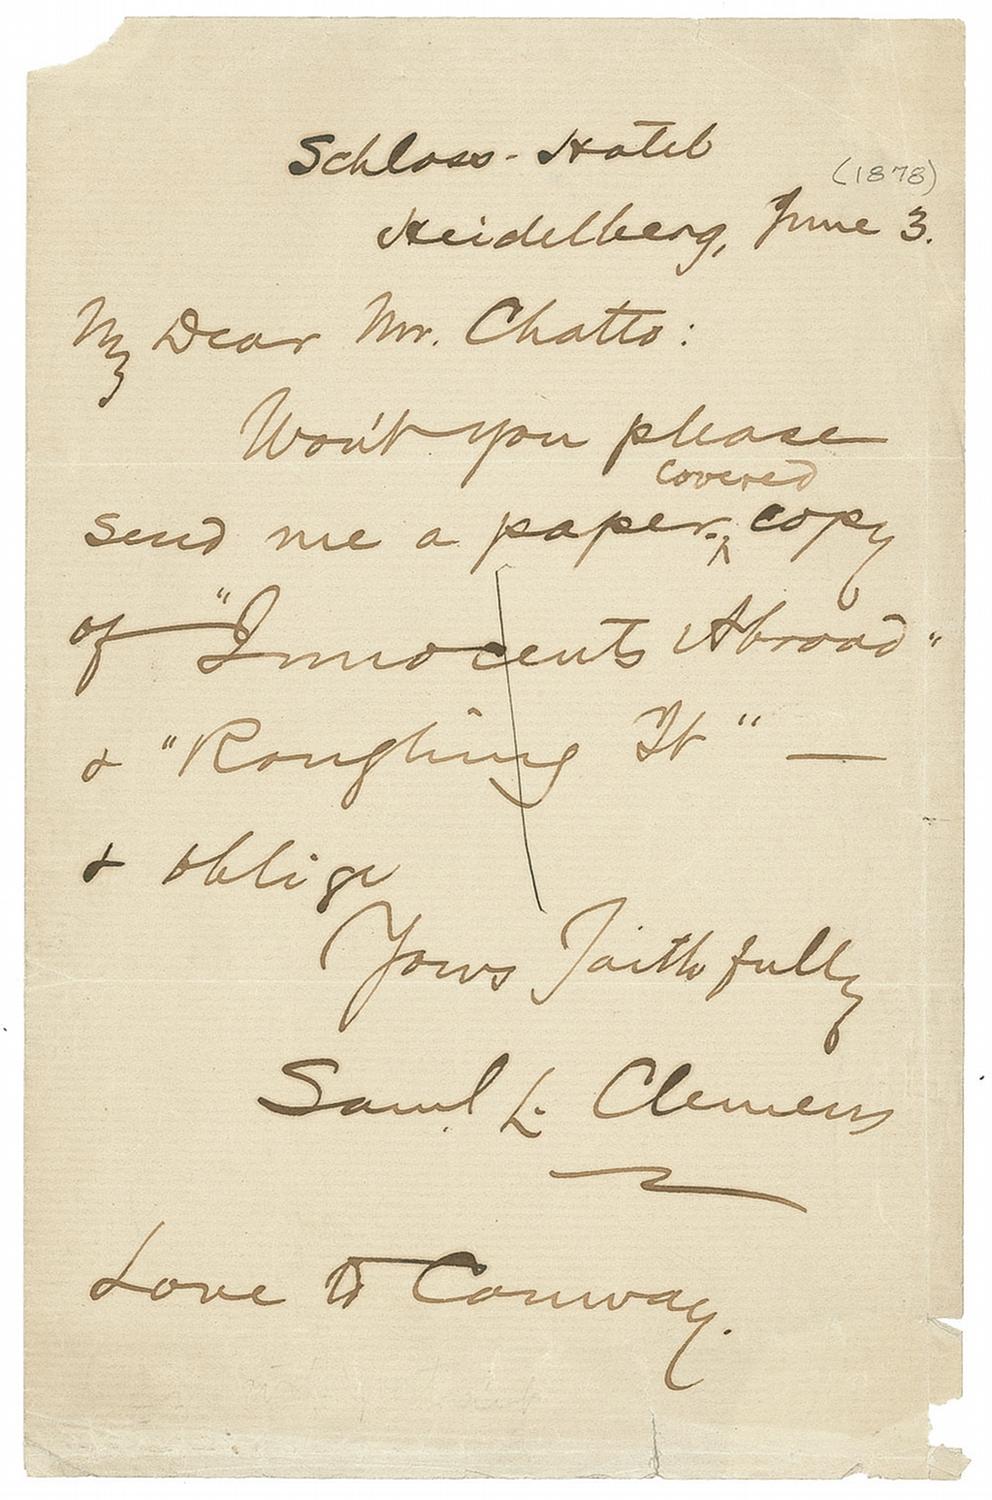 Schloss-Hotel
(1878)
Heidelberg, June 3.
My Dear Mr. Chatto:
Won't you please
covered
send me a paper-^copy
of "Innocents Abroad"
& "Roughing It" —
& oblige
Yours Faithfully
Saml. L. Clemens
Love to Conway.